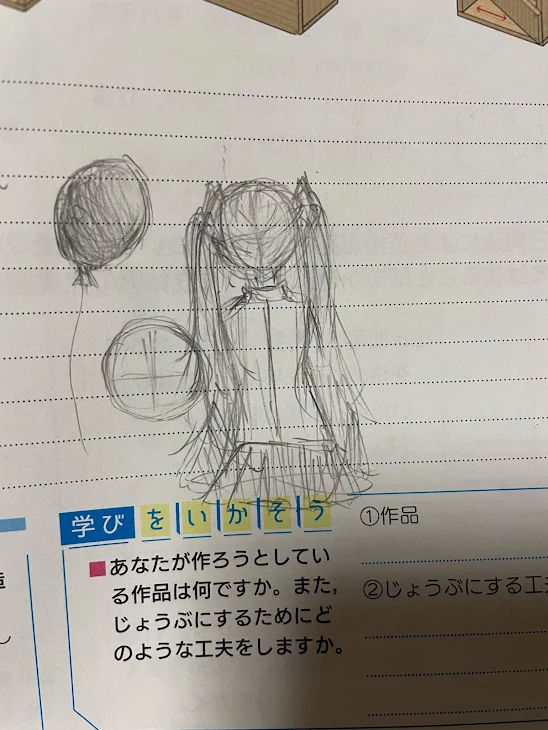 学びをいかそう
■あなたが作ろうとしてい
る作品は何ですか。また,
じょうぶにするためにど
のような工夫をしますか。
①作品
②じょうぶにする工